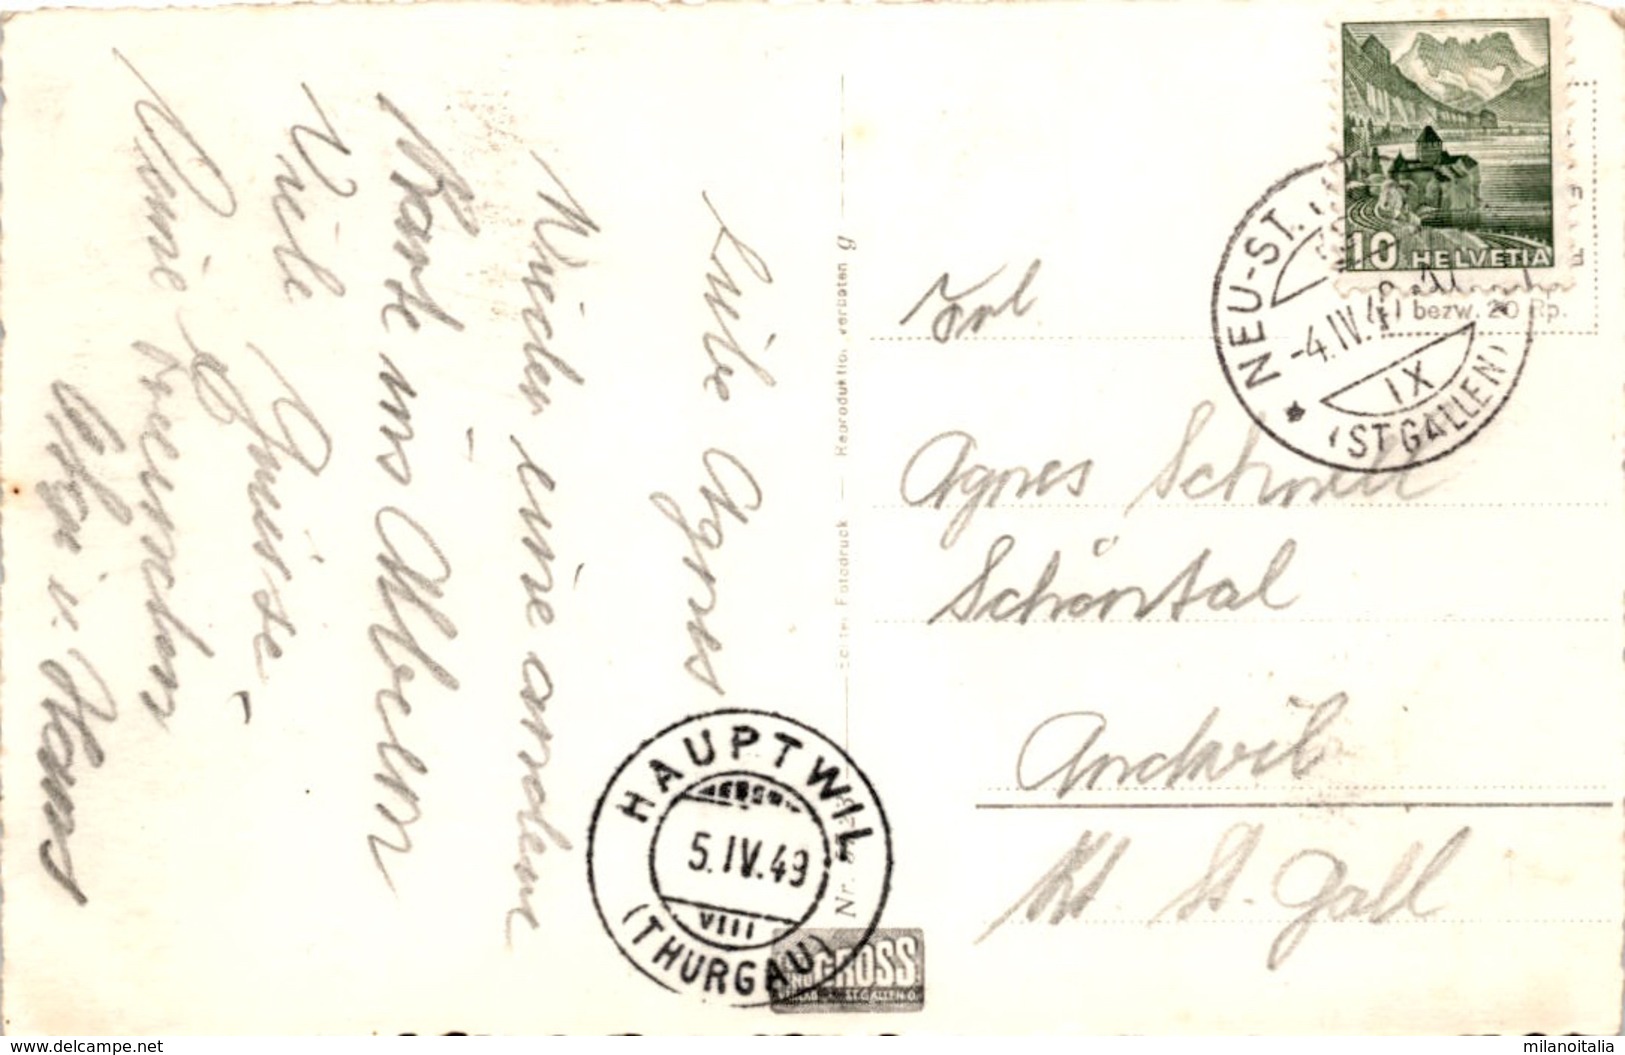 Liebe Agnes
Wieder eine andere
Karte ins Album
Viele Grüsse
Deine Freundin
u. Hans
Frl.
Agnes Schmid
Schöntal
Andwil
Kt. St. Gall
10 HELVETIA
bezw. 20 Rp.
NEU-ST.
-4.IV.49
IX
(ST GALLEN)
HAUPTWIL
5.IV.49
VIII
(THURGAU)
Fotodruck - Reproduktion verboten
Nr.
GROSS
ST.GALLEN
delcampe.net
milanoitalia